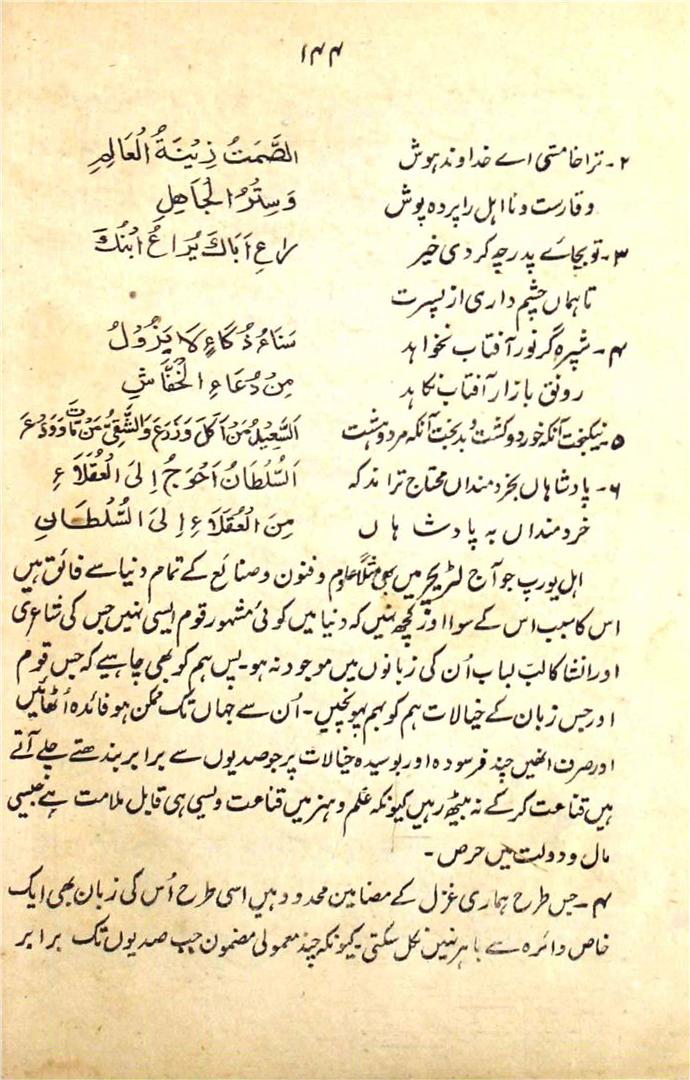 ۱۴۴
۲۔ ترا خامشی اے خداوند ہوش الصَّمَتُ زِیْنَةُ الْعَالِمِ
وقارست و نا اہل را پردہ پوش وَسِتْرُ الْجَاھِلِ
۳۔ تو بجائے پدر چہ کردی خیر رَاعِ اَبَاكَ یُرَاعُ ابْنُكَ
تا ہماں چشم داری از پسرت
۴۔ شپرہ گر نور آفتاب نخواہد سَنَاءُ ذُكَاءٍ لَا یَزُوْلُ
رونق بازار آفتاب نکاہد مِنْ دُعَاءِ الْخُفَّاشِ
۵۔ نیکبخت آنکہ خورد و کشت و بدبخت آنکہ مرد و ہشت اَلسَّعِیْدُ مَنْ اَكَلَ وَزَرَعَ وَالشَّقِیُّ مَنْ مَّاتَ وَوَدَعَ
۶۔ پادشاہاں بخردمنداں محتاج تر اند کہ اَلسُّلْطَانُ اَحْوَجُ اِلَی الْعُقَلَاءِ
خردمنداں بہ پادشاہاں مِنَ الْعُقَلَاءِ اِلَی السُّلْطَانِ
اہل یورپ جو آج لٹریچر میں بھی مثل علوم و فنون و صنائع کے تمام دنیا سے فائق ہیں
اس کا سبب اس کے سوا اور کچھ نہیں کہ دنیا میں کوئی مشہور قوم ایسی نہیں جس کی شاعری
اور انشا کا لب لباب اُن کی زبانوں میں موجود نہ ہو۔ پس ہم کو بھی چاہیے کہ جس قوم
اور جس زبان کے خیالات ہم کو بہم پہونچیں۔ اُن سے جہاں تک ممکن ہو فائدہ اُٹھائیں
اور صرف انھیں چند فرسودہ اور بوسیدہ خیالات پر جو صدیوں سے برابر بندھتے چلے آتے
ہیں قناعت کرکے نہ بیٹھ رہیں کیونکہ علم و ہنر میں قناعت ویسی ہی قابل ملامت ہے جیسی
مال و دولت میں حرص۔
۴۔ جس طرح ہماری غزل کے مضامین محدود ہیں اسی طرح اُس کی زبان بھی ایک
خاص دائرہ سے باہر نہیں نکل سکتی۔ کیونکہ چند معمولی مضمون جب صدیوں تک برابر